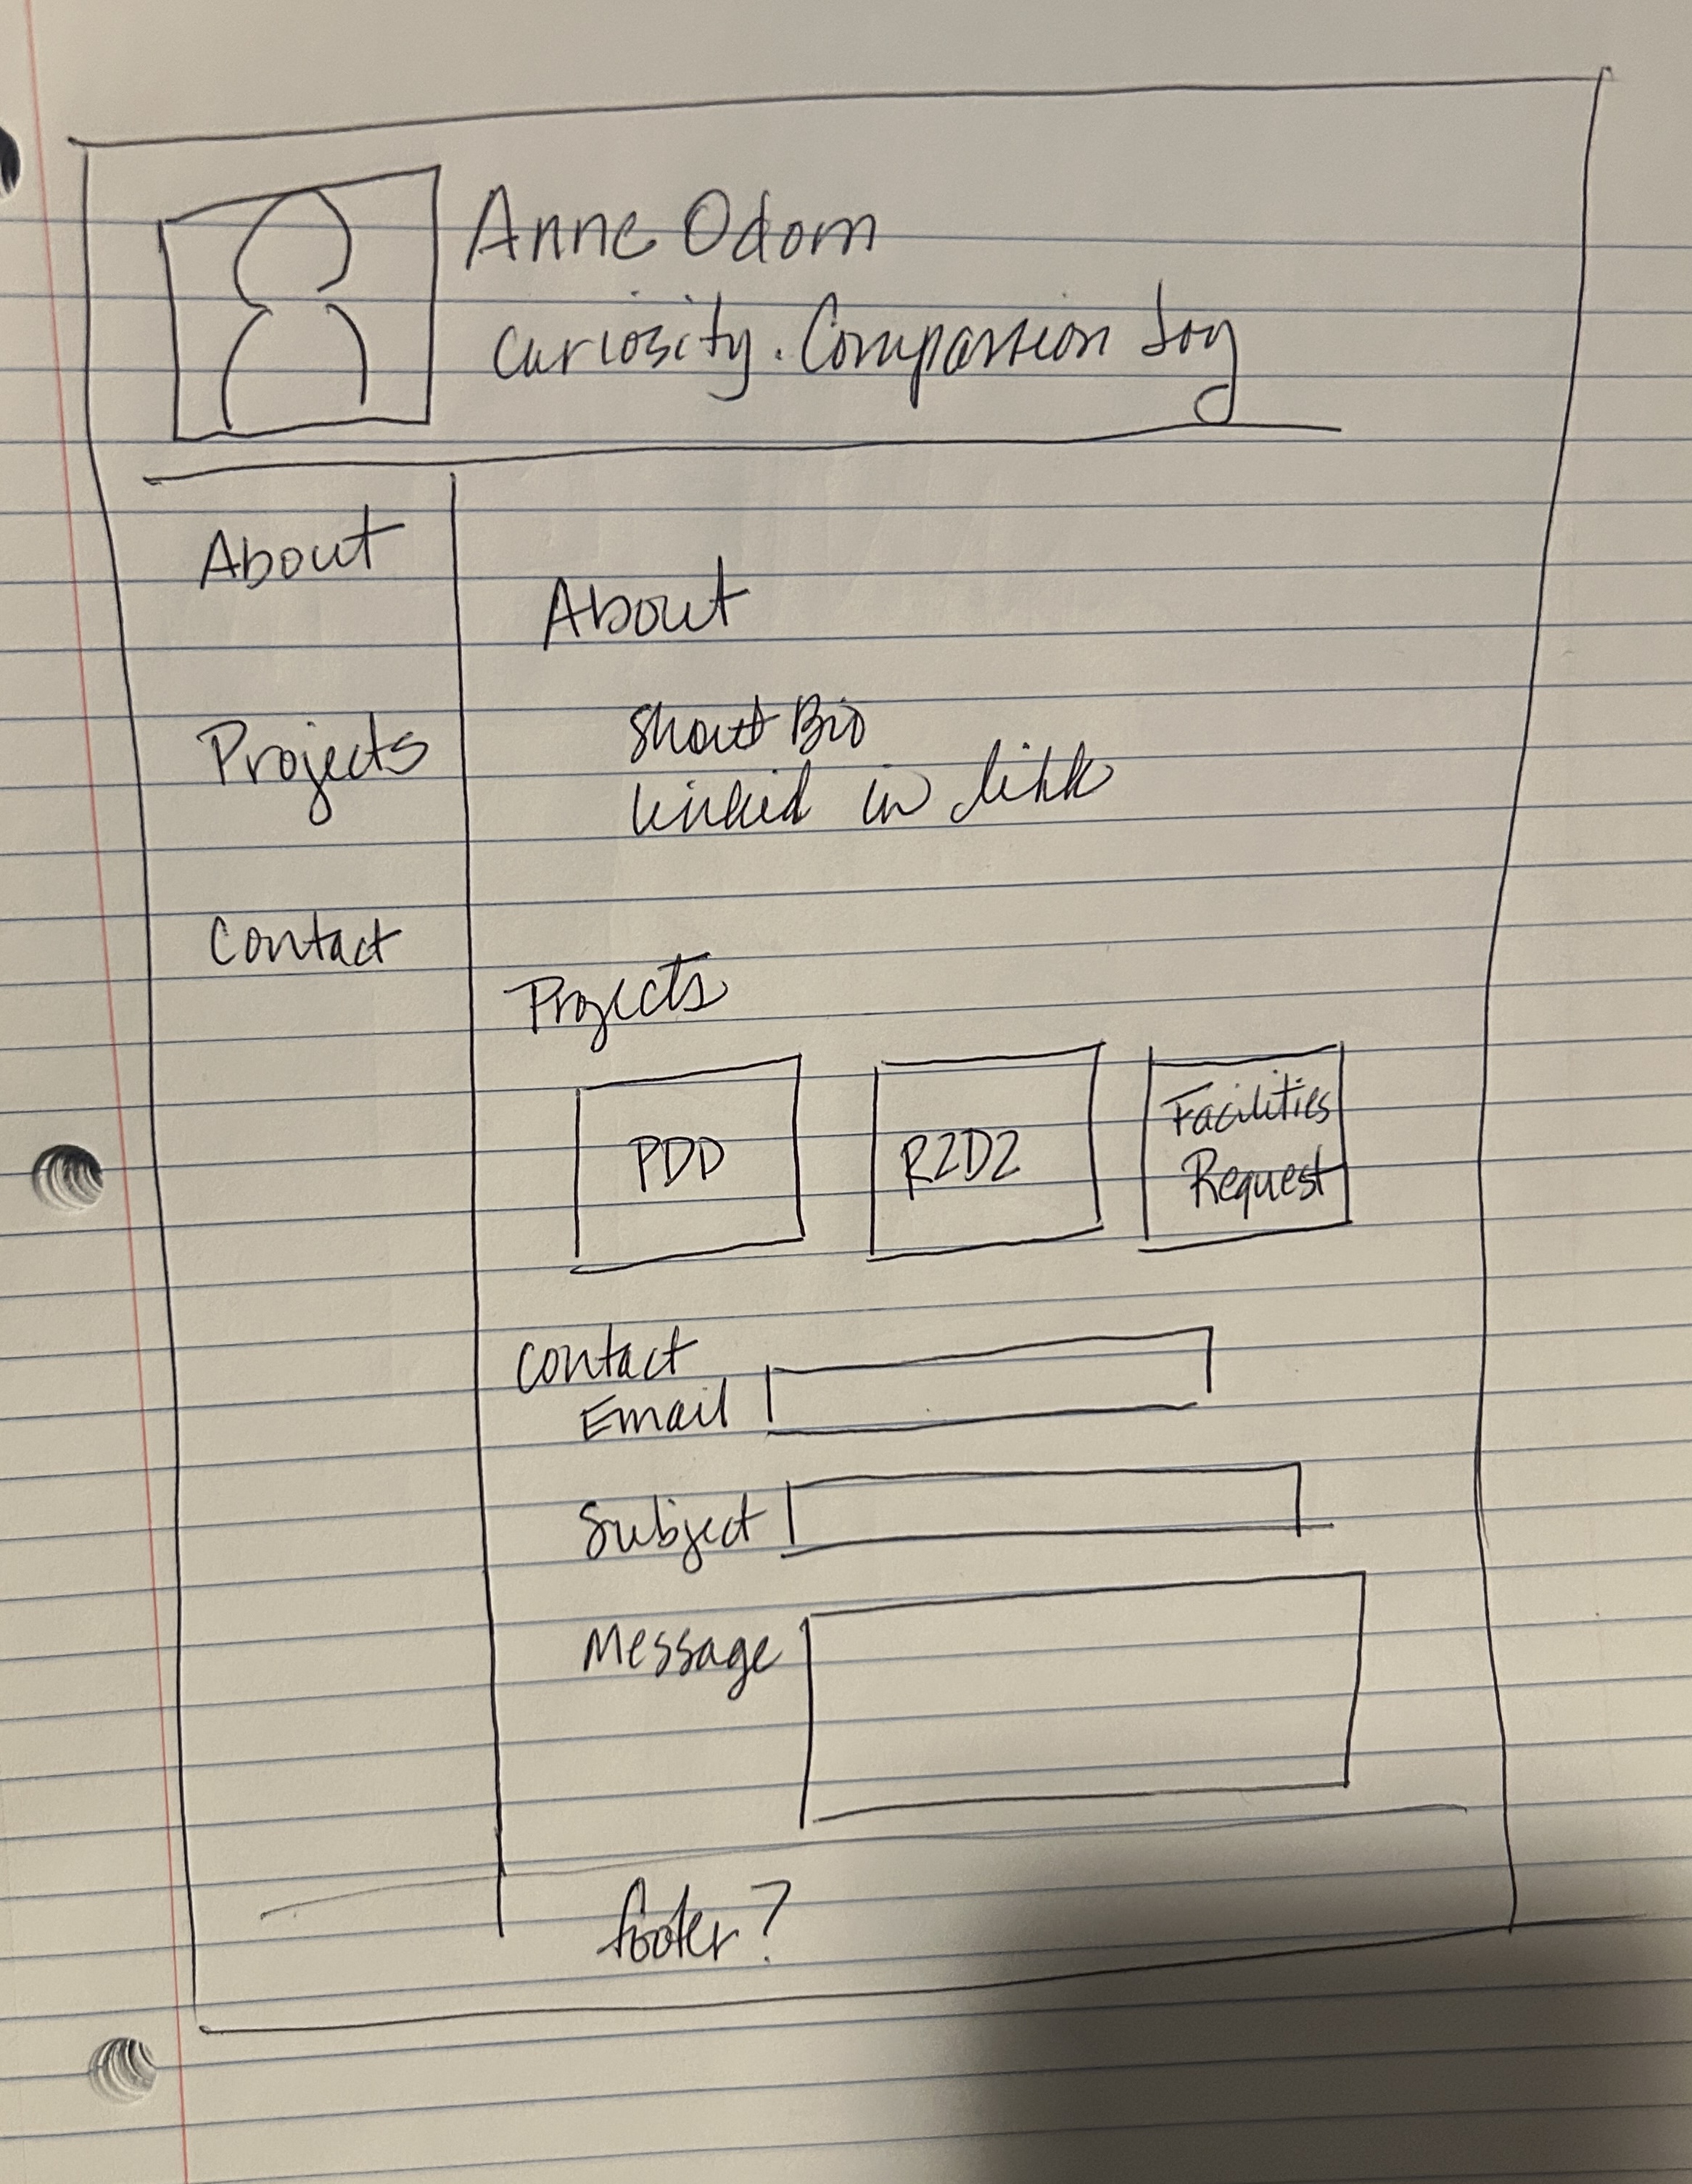 Anne Odom
Curiosity. Compassion Joy
About
Projects
Contact
About
Short Bio
linked in link
Projects
PDD
R2D2
Facilities
Request
Contact
Email
Subject
Message
footer?